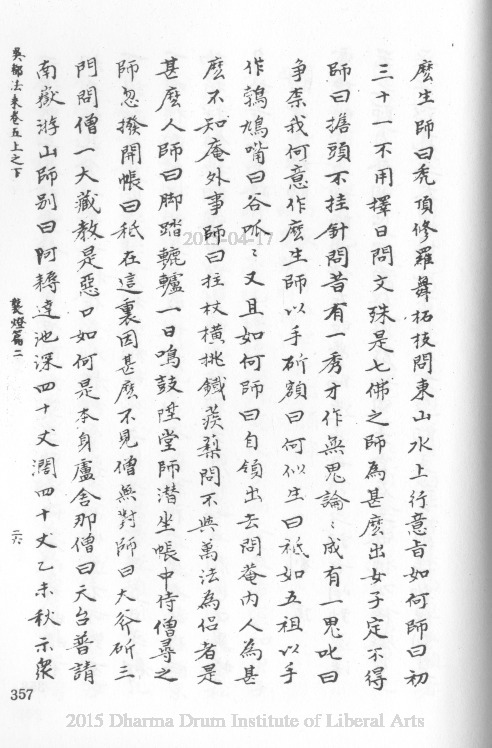 麽生師曰禿頂修羅舞柘枝問東山水上行意旨如何師曰初
三十一不用擇日問文殊是七佛之師為甚麽出女子定不得
師曰擔頭不挂針問昔有一秀才作無鬼論〻成有一鬼叱曰
争柰我何意作麽生師以手斫額曰何似生曰秪如五祖以手
作鵓鳩嘴曰谷呱〻又且如何師曰自領出去問菴內人為甚
麽不知庵外事師曰拄杖橫挑鐵蒺䔧問不與萬法為侶者是
甚麽人師曰脚踏轆轤一日鳴鼓陞堂師潛坐帳中侍僧尋之
師忽撥開帳曰秪在這裏因甚麽不見僧無對師曰大斧斫三
門問僧一大藏教是惡口如何是本身盧舍那僧曰天台普請
南嶽游山師別曰阿耨達池深四十丈濶四十丈乙未秋示衆
吳都法乘卷五上之下
奘燈篇二
二六
357
2015-04-17
2015 Dharma Drum Institute of Liberal Arts